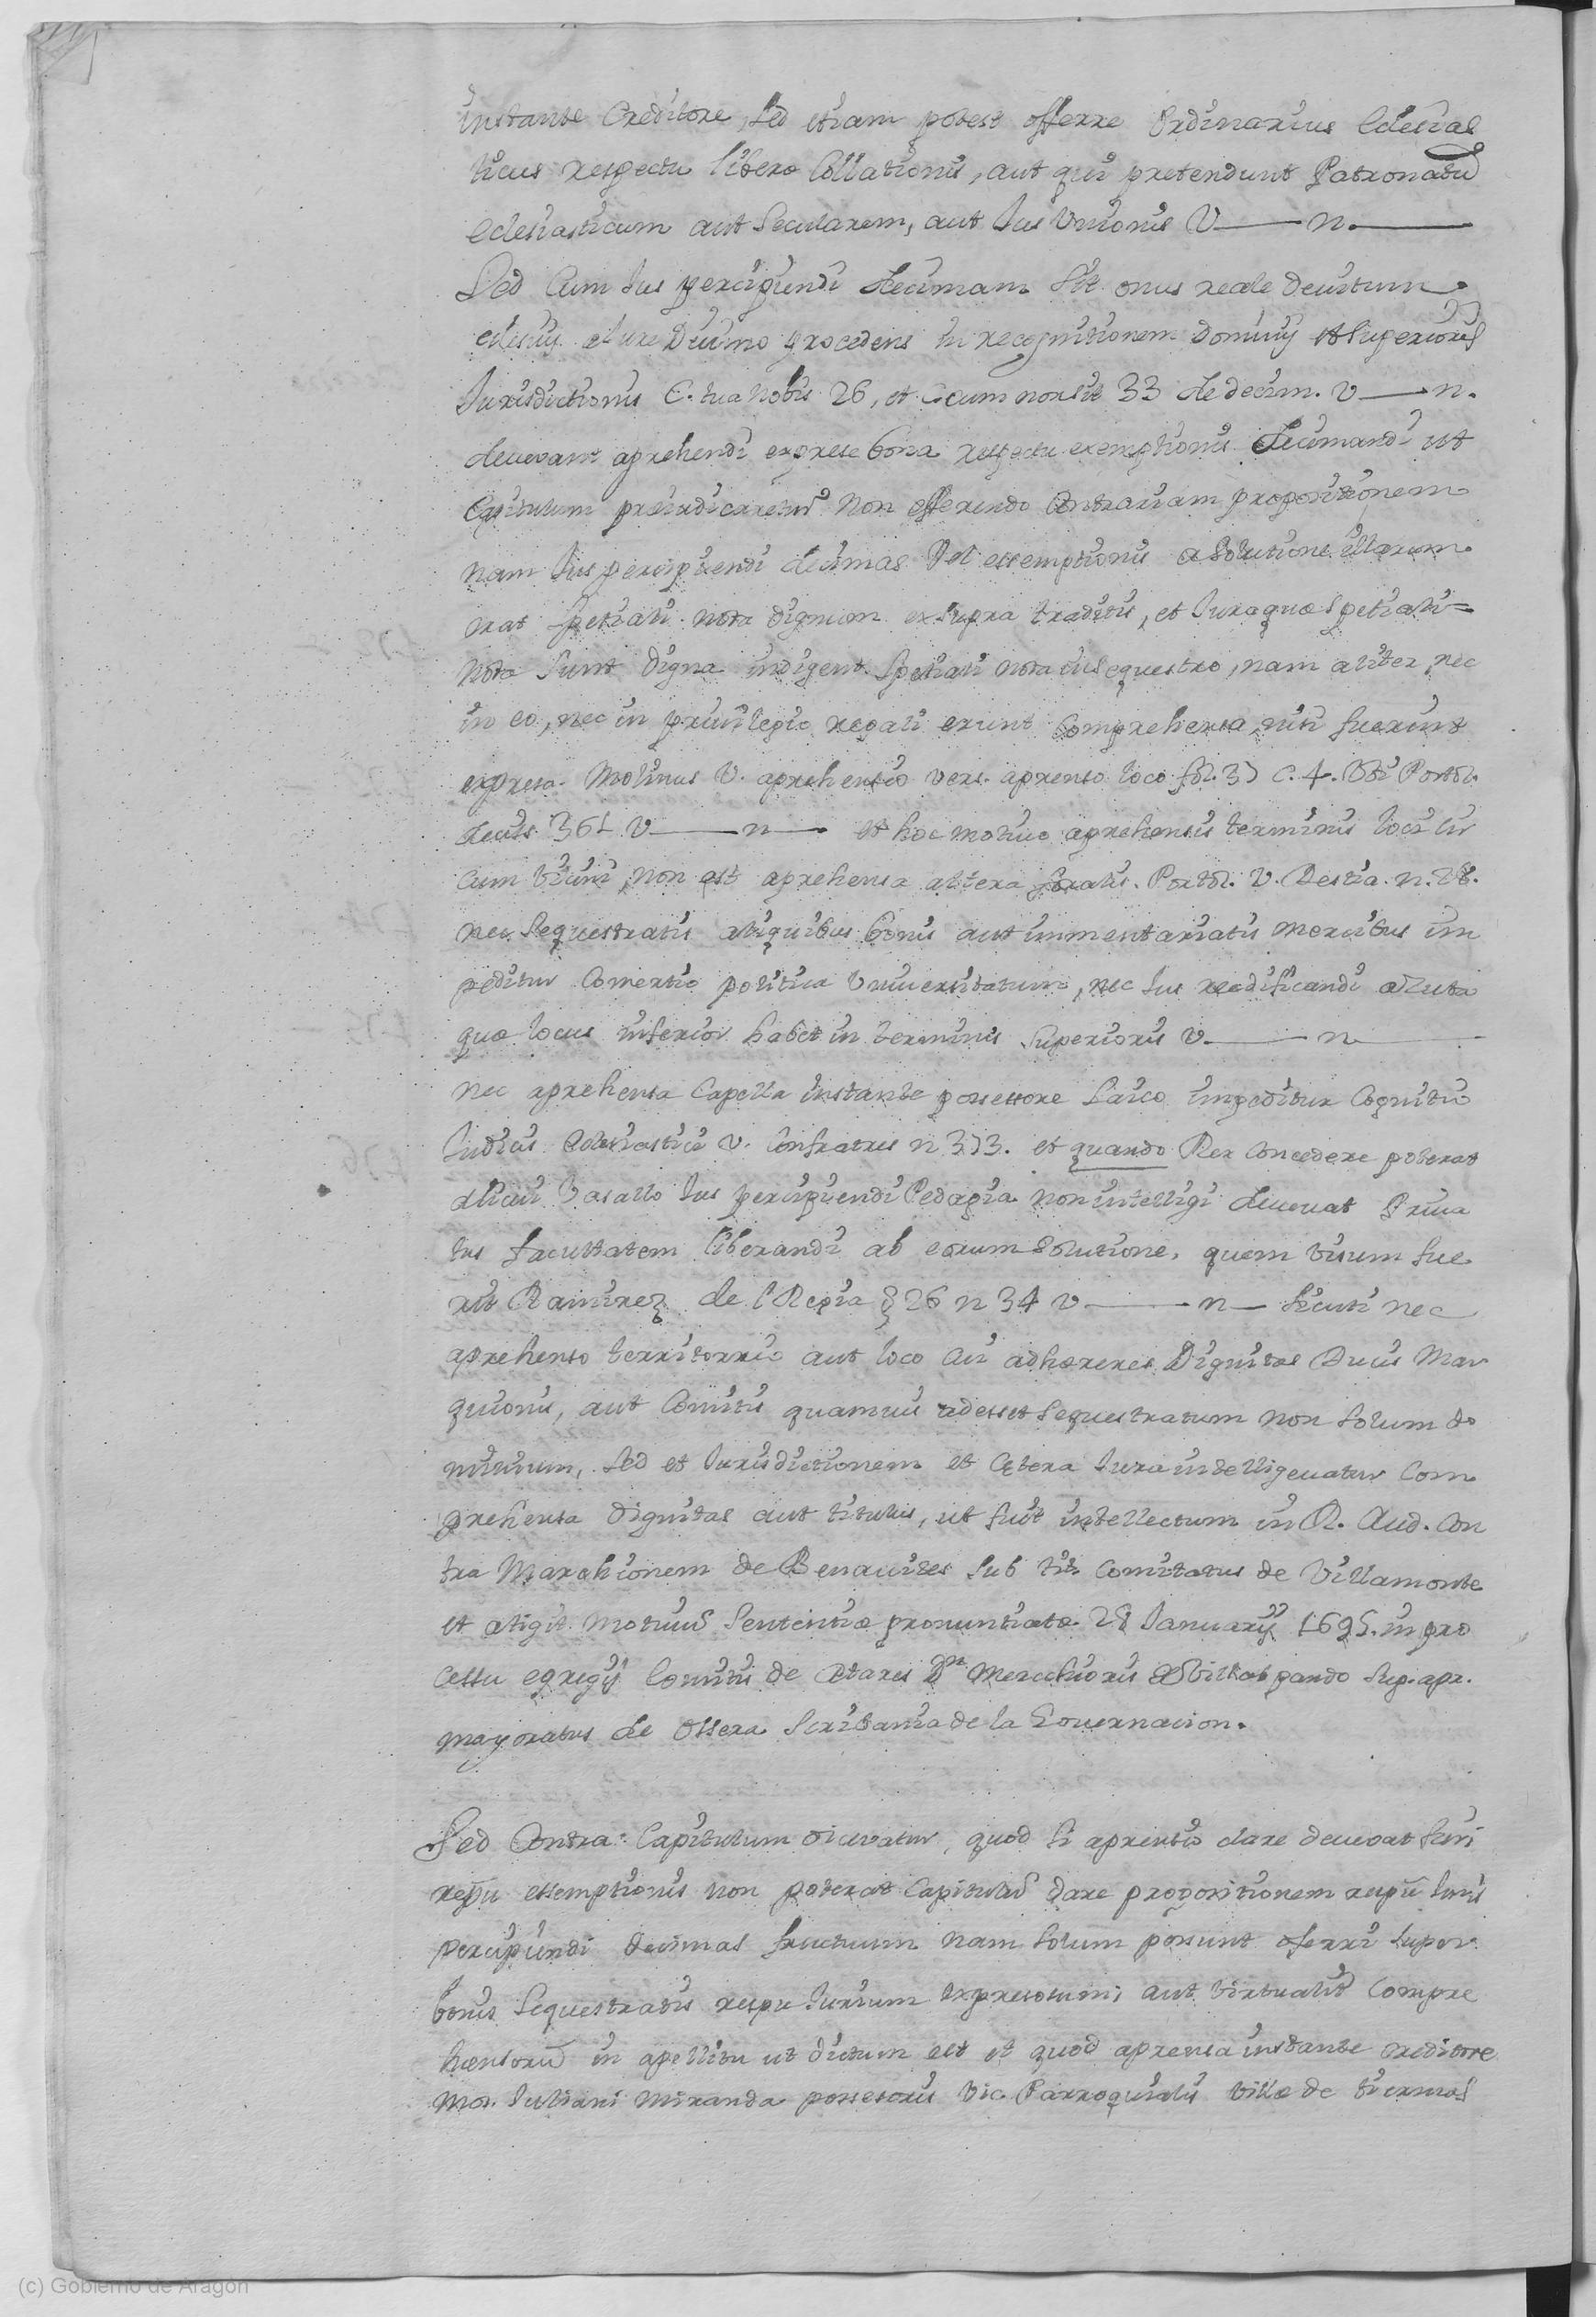 instante Creditore, Sed etiam potest offerre Ordinarius Eclesias
ticus respectu liberæ Collationis, aut qui pretendunt Patronatũ
eclesiasticum aut Secularem, aut Jus Unionis V—— n.——
Sed Cum Jus percipiendi decimam Sit onus reale devitum
eclesijs et iure Divino procedens in recognitionem Dominij et Superioris
Jurisdictionis C. tua nobis 26, et C. cum non sit 33 de decim. v—— n.
devevant aprehendi exprese bona respectu exemptionis decimandi ut
Capitulum preiudicaretur non offerendo Contrariam propositionem
nam Jus percipiendi decimas vel essemptionis a Solutione illarum
erat spetiali nota dignum ex supra traditis, et Jura quæ Spetiali=
nota Sunt digna indigent Spetiali nota in sequestro, nam aliter nec
in eo, nec in privilegio regali erunt Comprehensa, nisi fuerint
expresa. Molinus V. aprehensio vers. aprenso loco fol. 3) C. 4. Ubi Portol.
decis. 361 V—— n—— et hoc motivo aprehensis terminis loci cir
cum vicini, non est aprehensa altera Portol. V. Bestia. n. 28.
nec Sequestratis aliquibus bonis aut inmentariatis mercibus im
peditur Comertio politica Universitatum, nec Jus reedificandi
quæ locus inferior habet in terminis Superioris v—— n——
Nec aprehensa Capella instante possessore Laico impeditur Cognitio
Judicis eclesiastici V. Confratres n 3)3. et quando Rex Concedere poterat
alicui Vasallo Jus percipiendi Pedagia non intelligi devevat Priva
tus facultatem liberandi ab eorum Solutione, quem visum fue
rit Ramirez de L Regia § 26 n 34 v—— n— Sicuti nec
aprehenso territorrio aut loco cui adhæreret Dignitas Ducis Mar
quionis, aut Comitis quamvis adesset Sequestratum non Solum do
minium, Sed et Jurisdictionem et Cetera Jura intelligevatur Com
prehensa dignitas aut titulus, ut fuit intellectum in R. Aud. Con
tra Marchionem de Benavites Sub tit. Comitatus de Villamonte
et atigit motivis Sententiæ pronuntiatæ 28 Januarij 1695. in pro
cessu egregij Comitis de Atares Dn. Merchioris sup. apr.
mayoratus de Ossera Scribania de la Governacion.
Sed Contra: Capitulum dicevatur, quod Si aprensio clare devevat fieri
respu essemptionis non poterat Capitulũ dare propositionem respu Juris
percipiendi decimas fructuum nam Solum possunt oferri Super
bonis Sequestratis respu Jurium expresorum, aut virtualit Compre
hænsorũ in apellitu ut dictum est et quod aprensa instante creditore
Mos. Juliani Miranda possesoris Vic. Parroquialis Villæ de tiermas